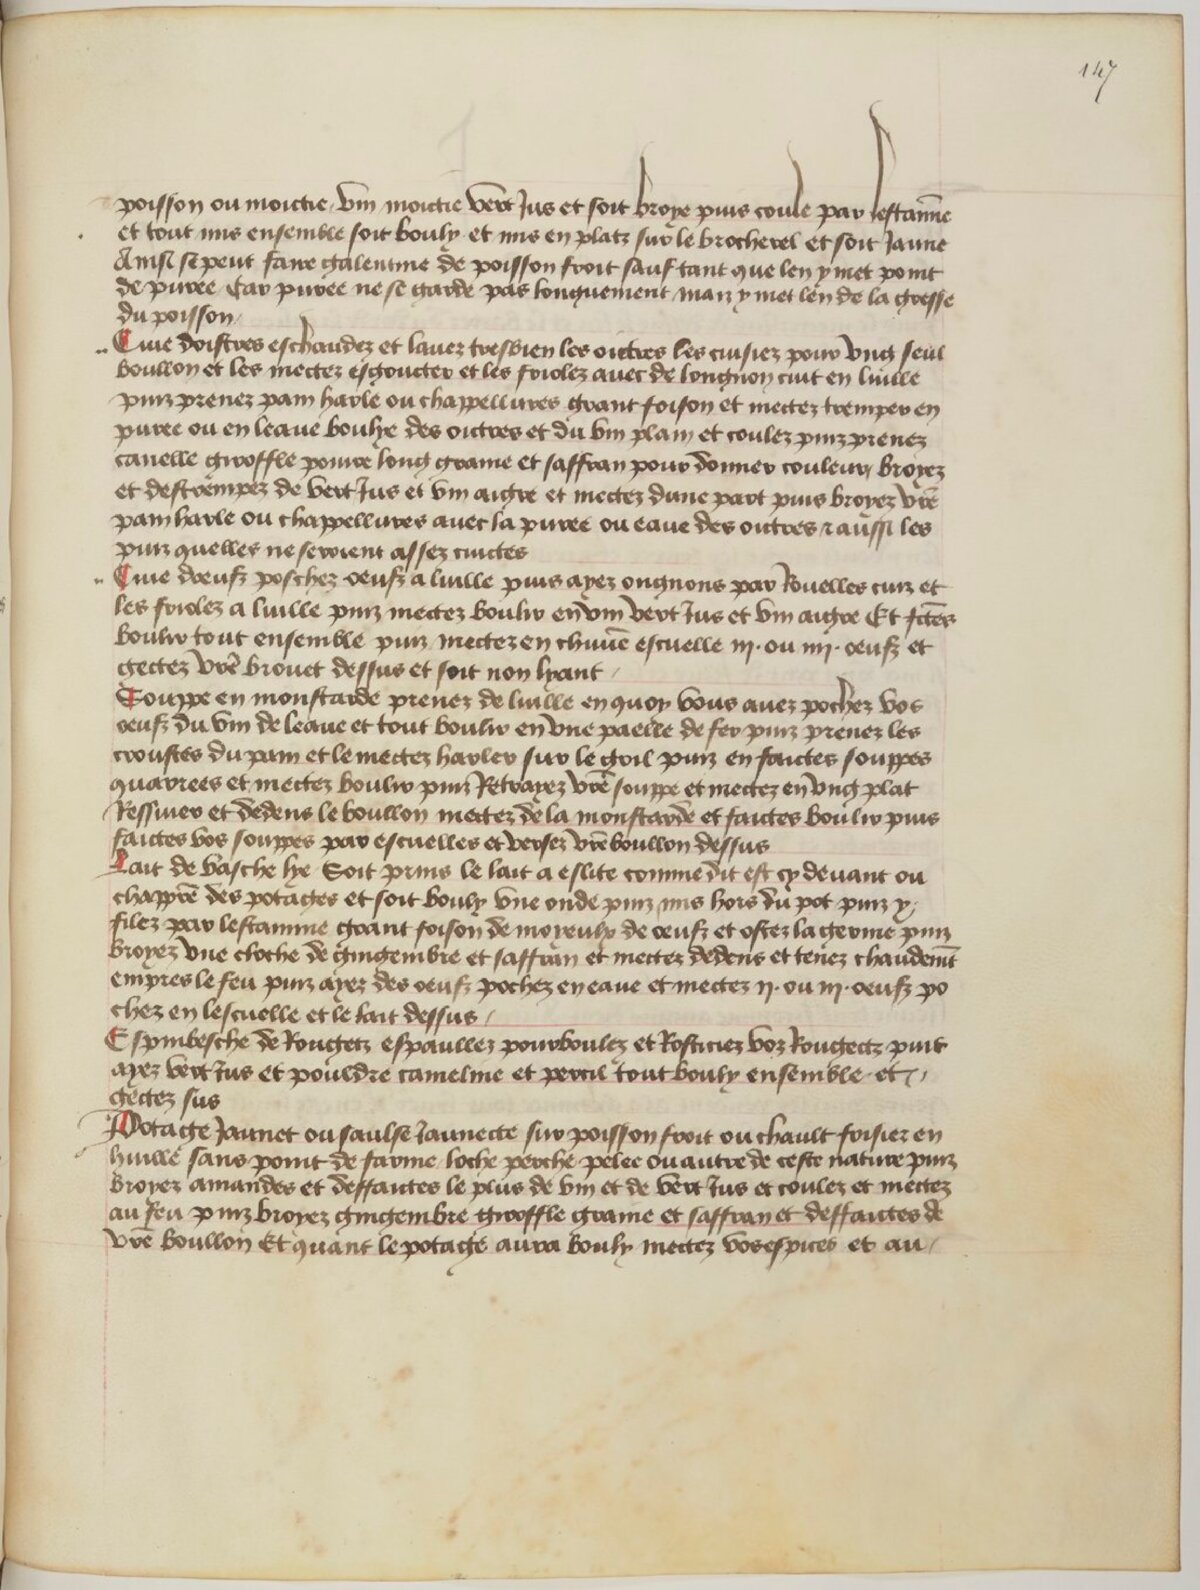 147
poisson ou moictie vin moictie vert Jus et soit broye puis coule par lestamīe
et tout mis ensemble soit bouly et mis en platz sur le brocherel et soit Jaune
Ainsi se peut faire galentine de poisson froit sauf tant que len y met point
de puree Car puree ne se garde pas longuement maiz y met len de la gresse
du poisson
Cive doistres eschaudez et lavez tresbien les oictres les cuisiez pour ung seul
boullon et les mectez esgoucter et les friolez avec de longnon cuit en luille
puiz prenez pain harle ou chappellures grant foison et mectez tremper en
puree ou en leaue boulye des oictres et du vin plain et coulez puiz prenez
canelle giroffle poivre long graine et saffran pour donner couleur broyez
et destrempez de vert Jus et vin aigre et mectez dune part puis broyez vr̄e
pain harle ou chappellures avec la puree ou eaue des oictres & aussi les
puiz quelles ne seroient assez cuictes
Cive doeufz poschez oeufz a luille puis ayez ongnons par Rouelles cuiz et
les friolez a luille puiz mectez boulir en vin vert Jus et vin aigre Et fc̄tes
boulir tout ensemble puiz mectez en chūnē escuelle iij. ou iiij. oeufz et
gectez vr̄e brouet dessus et soit non lyant
Souppe en moustarde prenez de luille en quoy vous avez pochez vos
oeufz du vin de leaue et tout boulir en une paelle de fer puiz prenez les
croustes du pain et le mectez harler sur le gril puiz en faictes souppes
quarrees et mectez boulir puiz Retrayez vr̄e souppe et mectez en ung plat
Ressuier et dedens le boullon mectez de la moustarde et faictes boulir puis
faictes vos souppes par escuelles et versez vr̄e boullon dessus
Lait de vasche lye Soit prins le lait a eslite comme dit est cy devant ou
chappr̄e des potages et soit bouly une onde puiz mis hors du pot puiz y
filez par lestamine grant foison de moyeulx de oeufz et ostez la germe puiz
broyez une cloche de gingembre et saffran et mectez dedens et tenez chaudemt̄
empres le feu puiz ayez des oeufz pochez en eaue et mectez ij. ou iij. oeufz po
chez en lescuelle et le lait dessus
Espinbesche de Rougetz espaullez pourboulez et Rosticiez voz Rougectz puiz
ayez vert Jus et pouldre cameline et percil tout bouly ensemble et
gectez sus
Potage Jaunet ou saulse Jaunecte sur poisson froit ou chault frisiez en
huille sans point de farine loche perche pelee ou autre de ceste nature puiz
broyez amandes et deffaictes le plus de vin et de vert Jus et coulez et mectez
au feu puiz broyez gingembre giroffle graine et saffran et deffaictes de
vr̄e boullon Et quant le potage aura bouly mectez vos espices et au